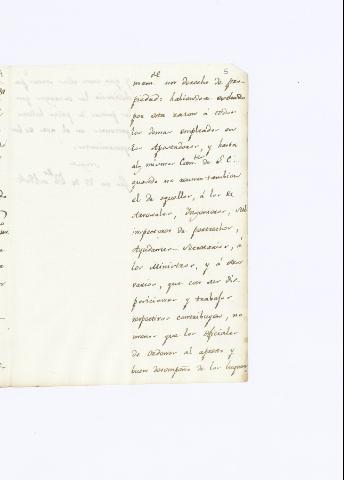 5
de
mar por derecho de pro-
piedad: habiendose excluido
por esta razon á todos
los demas empleados en
los Apostaderos, y hasta
al mismo Com.te de el C.
quando no reuna tambien
el de aquellos, á los
Arsenales, Ingenieros, Sub
inspectores de pertrechos,
Ayudantes Secretarios, á
los Ministros, y á otros
varios, que con sus dis-
posiciones y trabajos
respectivos contribuyen, no
menos que los oficiales
de ordenes al apresto y
buen desempeño de los buques